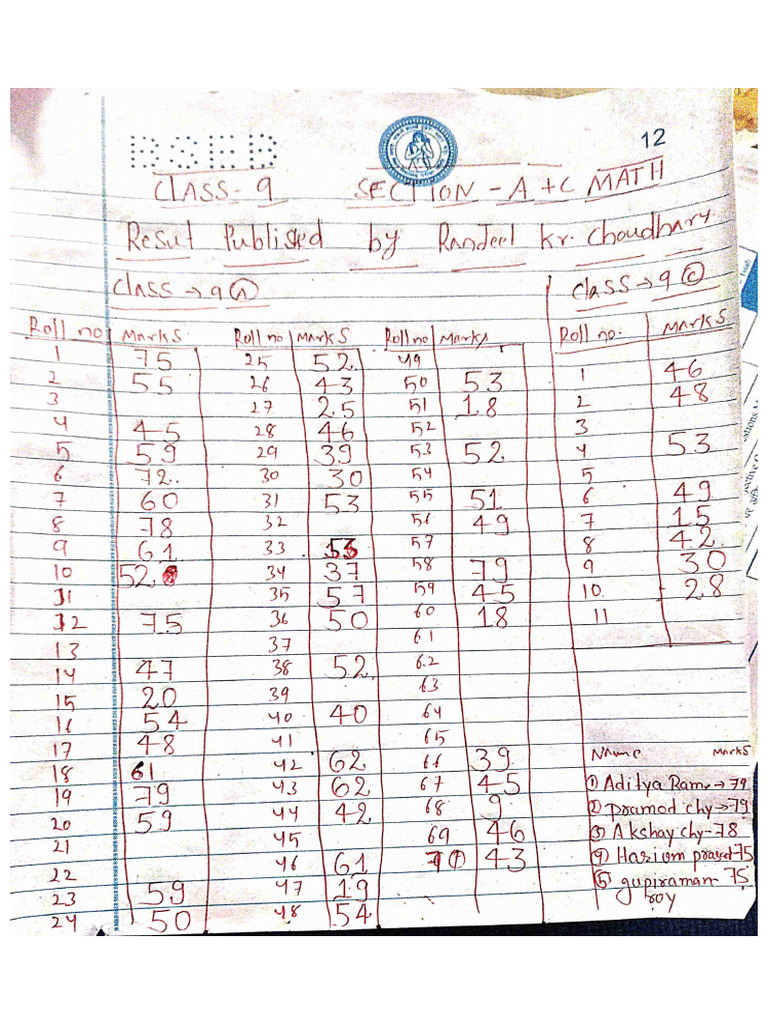 BSEB
12
CLASS- 9 SECTION - A + C MATH
Resut Publised by Randeel Kr. Choudhary
CLASS → 9 (A) Class → 9 (C)
Roll no Marks Roll no Marks Roll no Marks Roll no. Marks
1 75 25 52 49 1 46
2 55 26 43 50 53 2 48
3 27 25 51 18 3
4 45 28 46 52 4 53
5 59 29 39 53 52 5
6 72. 30 30 54 6 49
7 60 31 53 55 51 7 15
8 78 32 56 49 8 42
9 61 33 57 9 30
10 52 34 37 58 79 10. 28
11 35 57 59 45 11
12 75 36 50 60 18
13 37 61
14 47 38 52 62
15 20 39 63
16 54 40 40 64
17 48 41 65
18 61 42 62 66 39
19 79 43 62 67 45
20 59 44 42 68 9
21 45 69 46
22 46 61 70 43
23 59 47 19
24 50 48 54
Name Marks
① Aditya Ram → 79
② Pramod chy → 79
③ Akshay chy - 78
④ Hariom prasad 75
⑤ gupiraman 75
roy